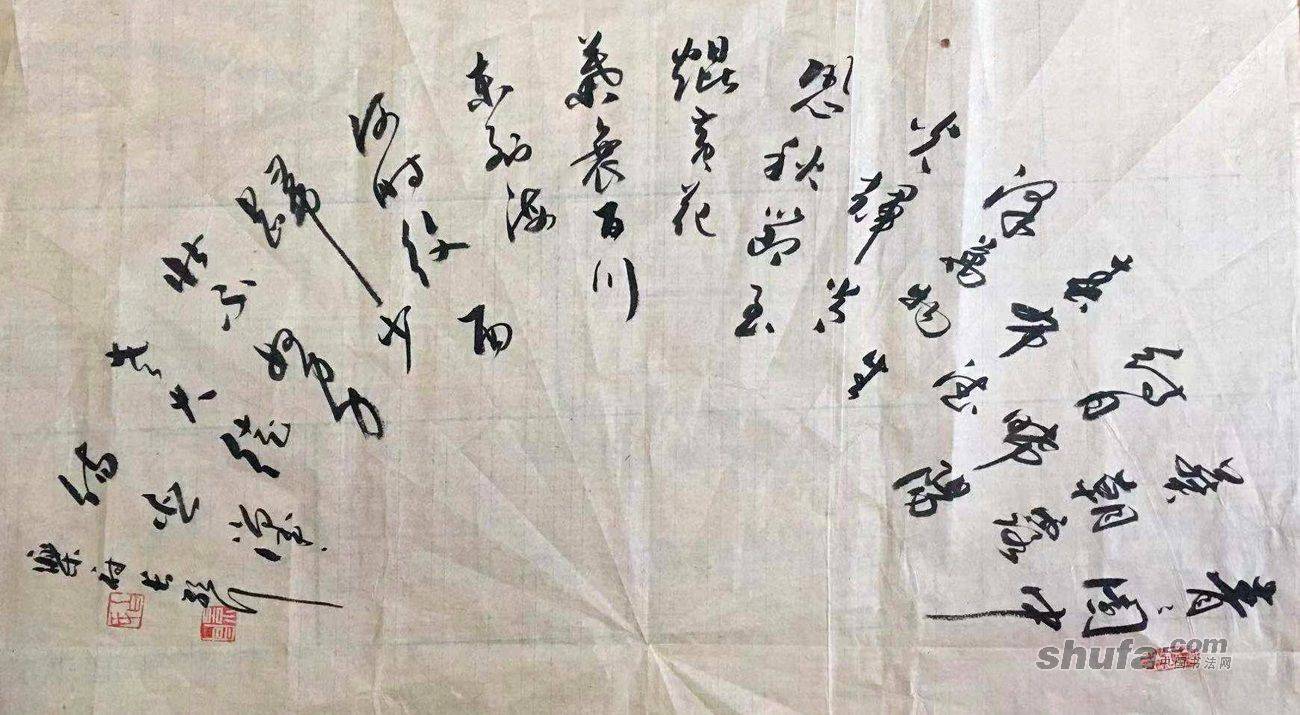 青〻園中
葵朝露
待日晞陽
春布德
澤萬物生
光輝常
恐秋節至
焜黄花
葉衰百川
东到海
何时復西
歸少
壮不努力
老大徒
傷悲
shufa.com
中国书法网